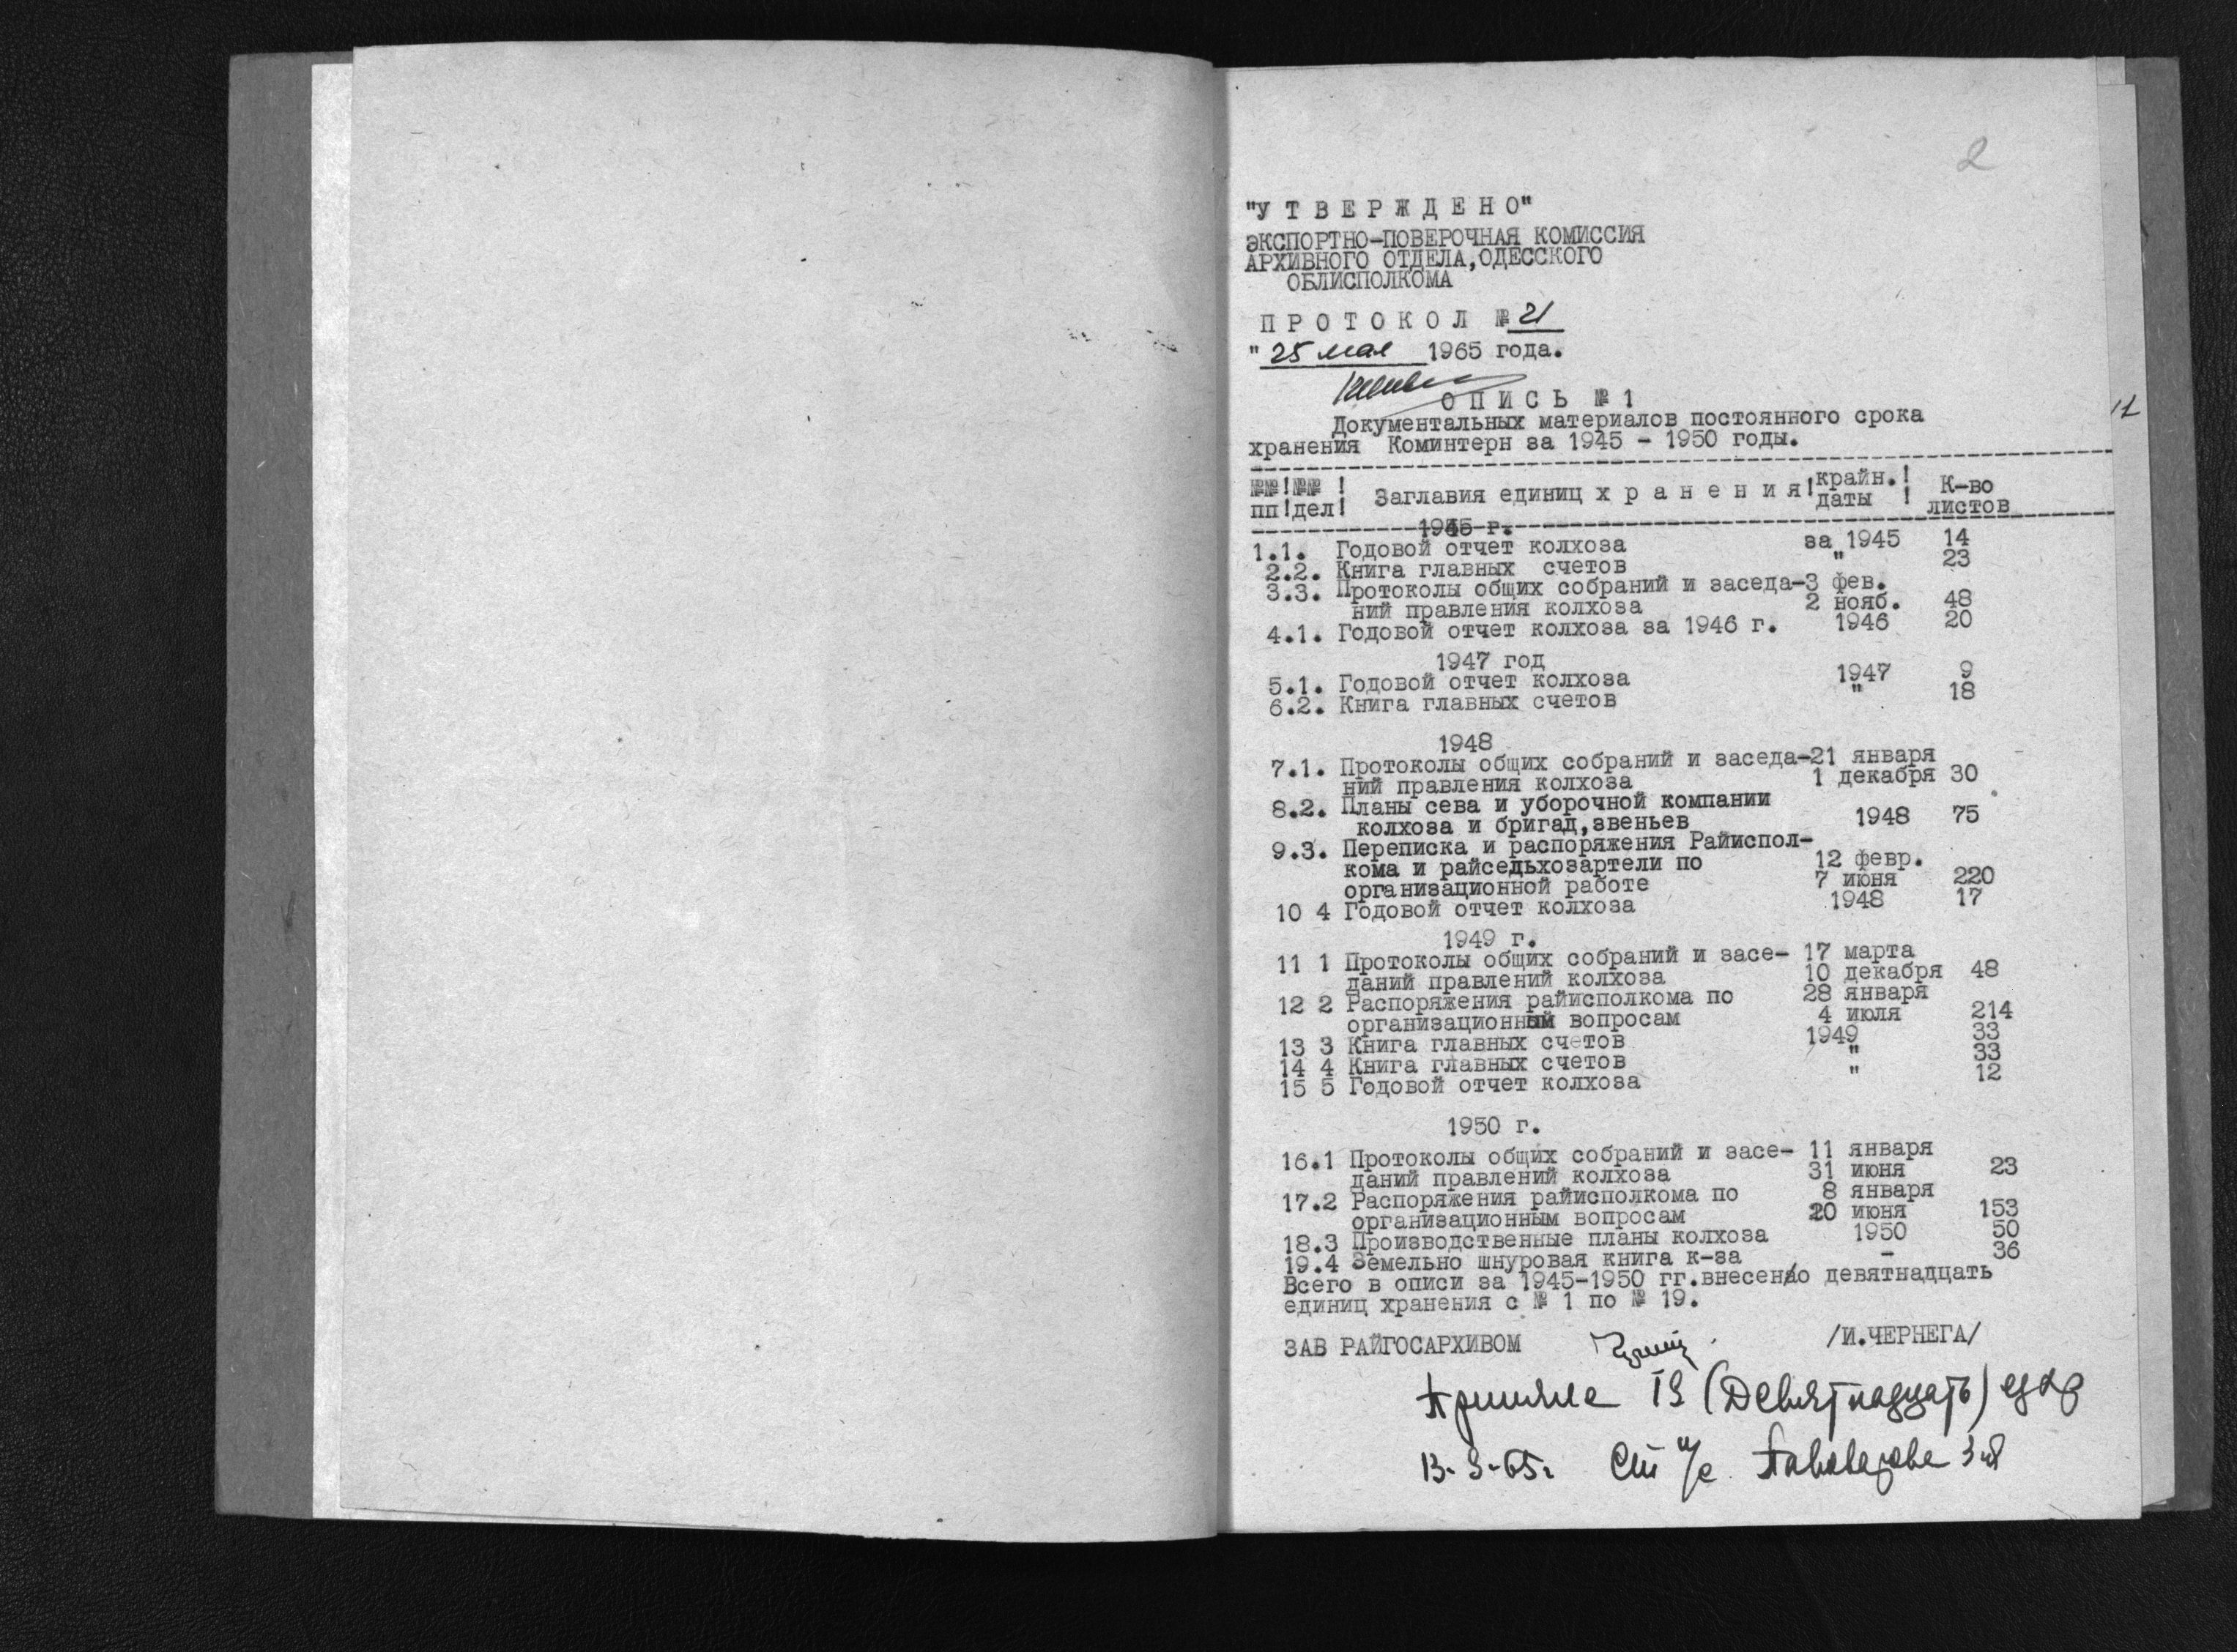 2
"У Т В Е Р Ж Д Е Н О"
ЭКСПОРТНО-ПОВЕРОЧНАЯ КОМИССИЯ
АРХИВНОГО ОТДЕЛА, ОДЕССКОГО
ОБЛИСПОЛКОМА
П Р О Т О К О Л № 21
" 25 мая 1965 года.
О П И С Ь № 1
Документальных материалов постоянного срока
хранения Коминтерн за 1945 - 1950 годы.
№№ ! №№ ! Заглавия единиц х р а н е н и я ! крайн. ! К-во
пп ! дел ! даты ! листов
1945 г.
1.1. Годовой отчет колхоза за 1945 14
2.2. Книга главных счетов " 23
3.3. Протоколы общих собраний и заседа- 3 фев.
ний правления колхоза 2 нояб. 48
4.1. Годовой отчет колхоза за 1946 г. 1946 20
1947 год
5.1. Годовой отчет колхоза 1947 9
6.2. Книга главных счетов " 18
1948
7.1. Протоколы общих собраний и заседа- 21 января
ний правления колхоза 1 декабря 30
8.2. Планы сева и уборочной компании
колхоза и бригад, звеньев 1948 75
9.3. Переписка и распоряжения Райиспол-
кома и райседьхозартели по 12 февр.
организационной работе 7 июня 220
10 4 Годовой отчет колхоза 1948 17
1949 г.
11 1 Протоколы общих собраний и засе- 17 марта
даний правлений колхоза 10 декабря 48
12 2 Распоряжения райисполкома по 28 января
организационный вопросам 4 июля 214
13 3 Книга главных счетов 1949 33
14 4 Книга главных счетов " 33
15 5 Годовой отчет колхоза " 12
1950 г.
16.1 Протоколы общих собраний и засе- 11 января
даний правлений колхоза 31 июня 23
17.2 Распоряжения райисполкома по 8 января
организационным вопросам 20 июня 153
18.3 Производственные планы колхоза 1950 50
19.4 Земельно шнуровая книга к-за - 36
Всего в описи за 1945-1950 гг. внесено девятнадцать
единиц хранения с № 1 по № 19.
ЗАВ РАЙГОСАРХИВОМ /И.ЧЕРНЕГА/
Приняла 19 (Девятнадцать) ед хр
Ст н/с